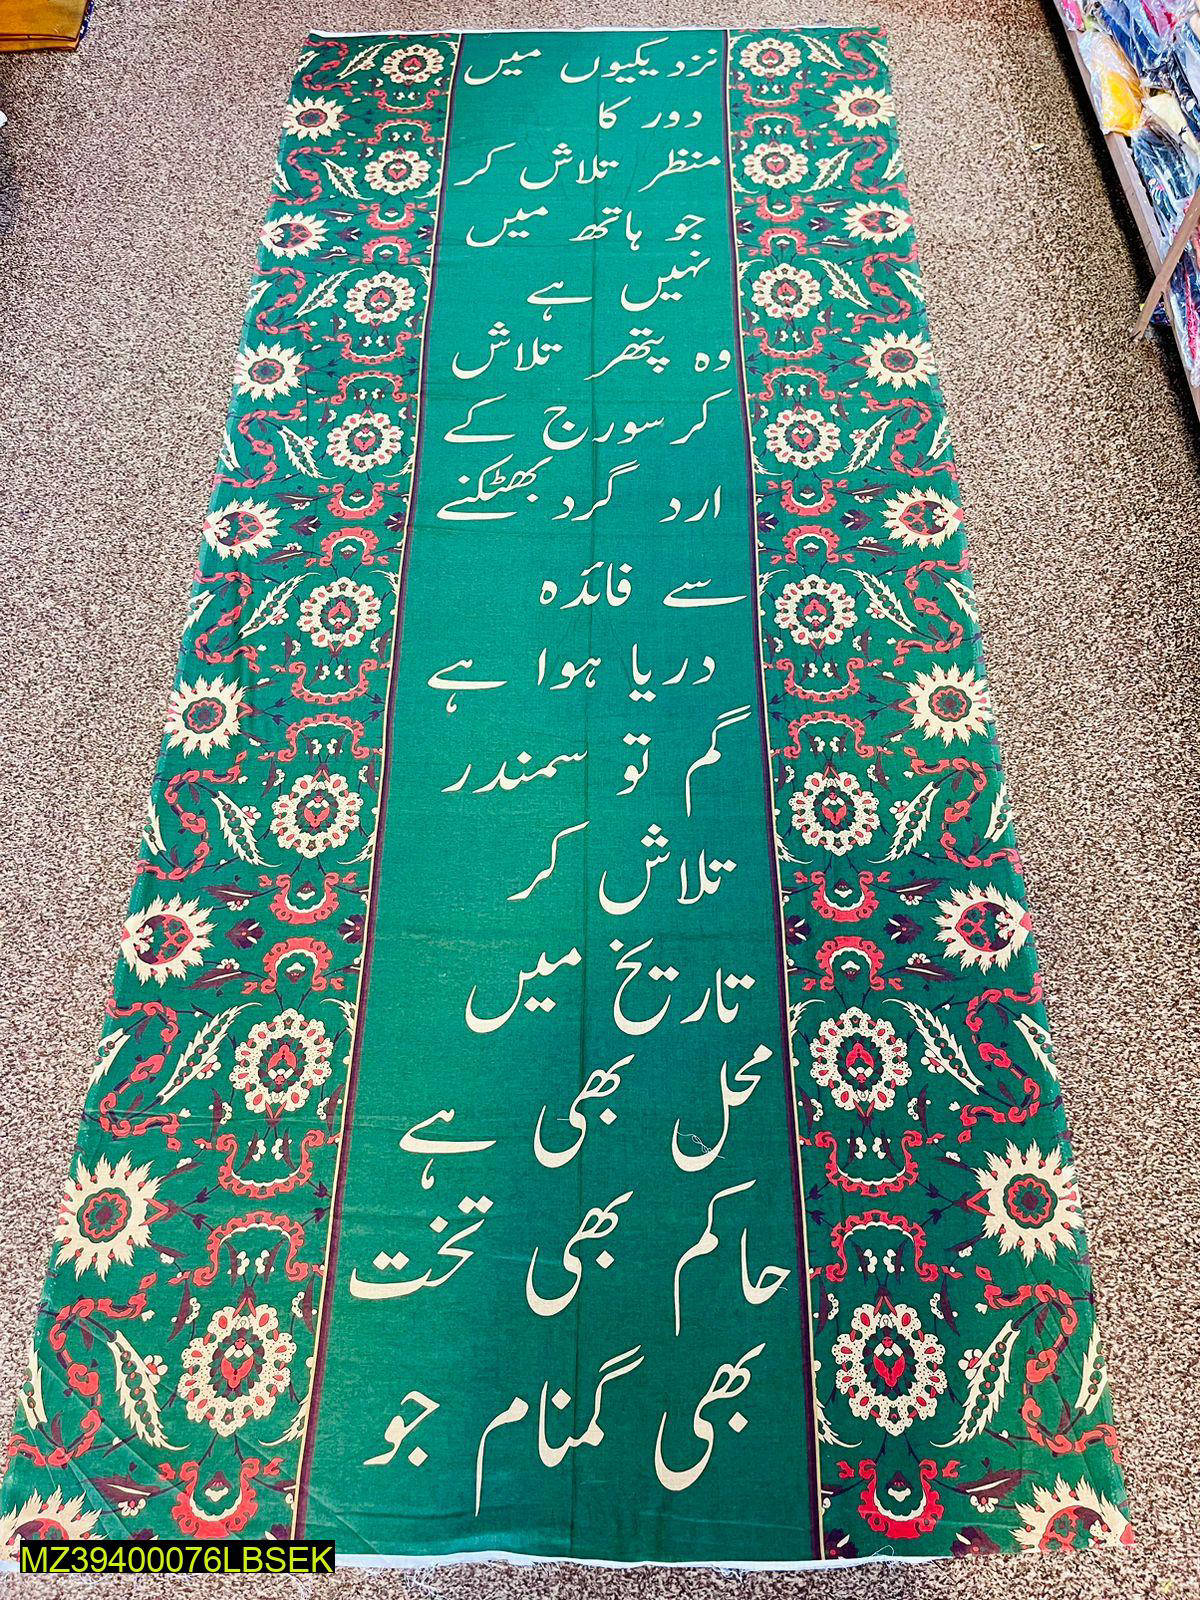 نزدیکیوں میں
دور کا
منظر تلاش کر
جو ہاتھ میں
نہیں ہے
وہ پتھر تلاش
کر سورج کے
ارد گرد بھٹکنے
سے فائدہ
دریا ہوا ہے
گم تو سمندر
تلاش کر
تاریخ میں
محل بھی ہے
حاکم بھی تخت
بھی گمنام جو
MZ39400076LBSEK